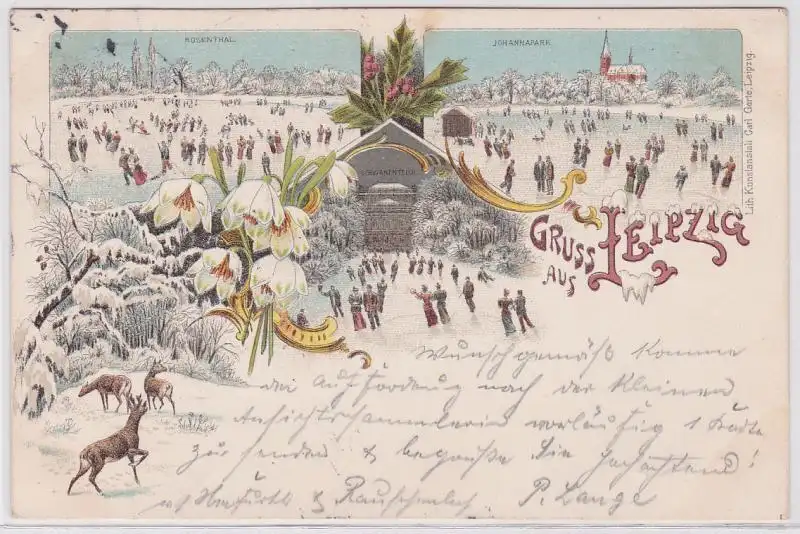 ROSENTHAL.
JOHANNAPARK.
SCHWANENTEICH.
GRUSS
AUS
LEIPZIG
Lith. Kunstanstalt Carl Garte, Leipzig.
Wunschgemäß komme
der Aufforderung nach der kleinen
Ansichtssammlerin vorläufig 1 Karte
zu senden & begrüße Sie hochachtend!
& Rauschenbach P. Lange